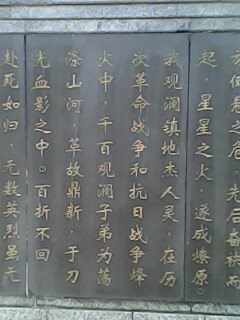 倒悬之危，先后奋袂而
起，星星之火，遂成燎原。
我观澜镇地杰人灵，在历
次革命战争和抗日战争烽
火中，千百观澜子弟为荡
涤山河，革故鼎新，于刀
光血影之中。百折不回
赴死如归，无数英烈虽无